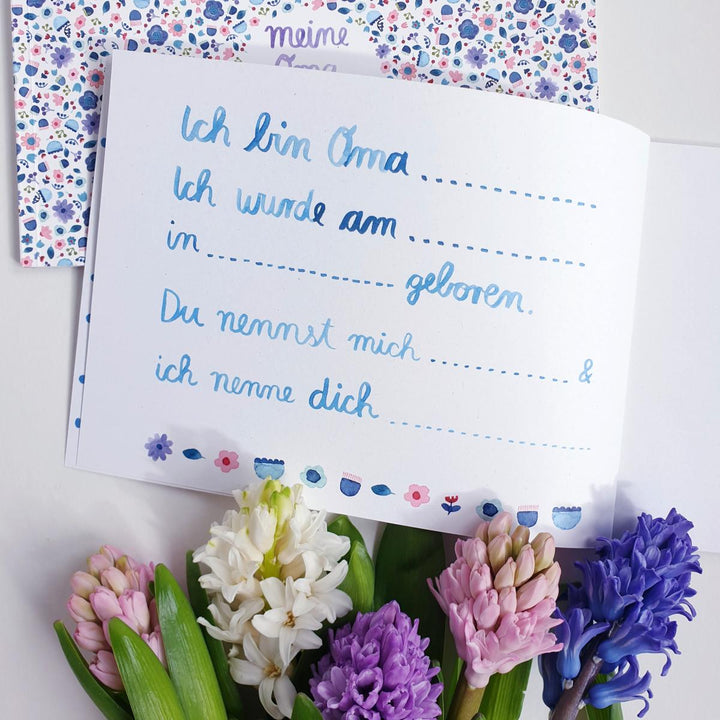 meine
Oma
Ich bin Oma ....................
Ich wurde am ....................
in .................... geboren.
Du nennst mich ............... &
ich nenne dich ....................